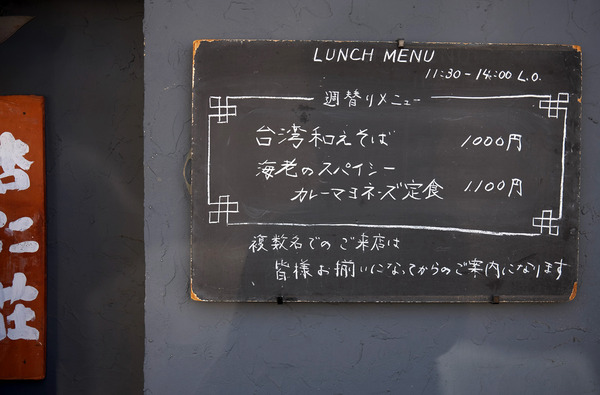 LUNCH MENU
11:30-14:00 L.O.
週替りメニュー
台湾和えそば 1000円
海老のスパイシー
カレーマヨネーズ定食 1100円
複数名でのご来店は
皆様お揃いになってからのご案内になります
荘